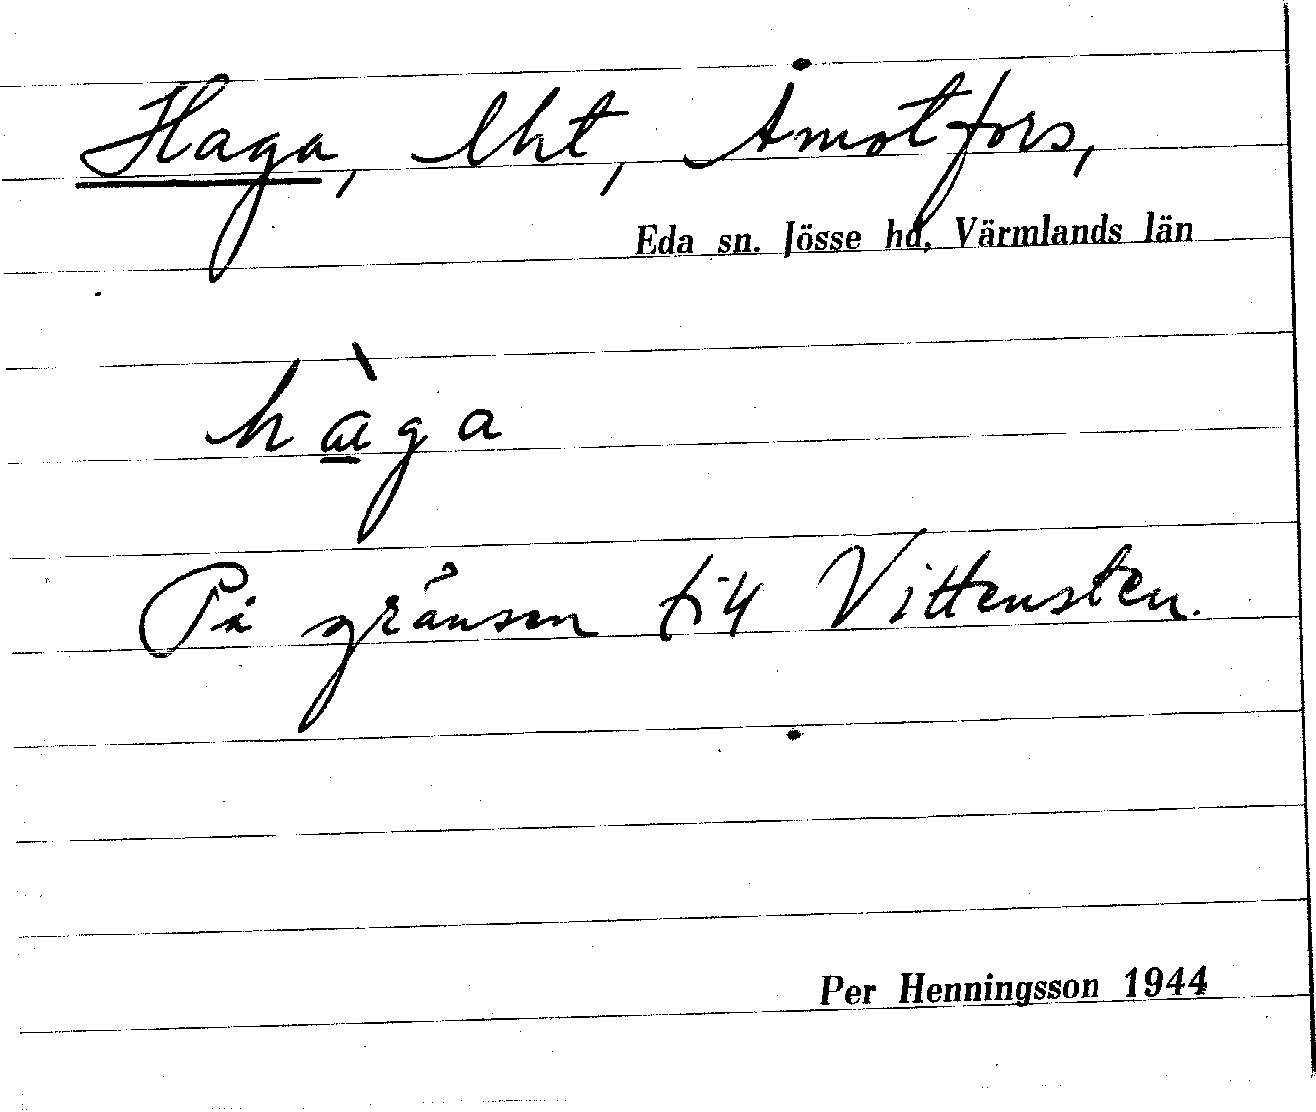 Haga, lht, Åmotfors,
Eda sn. Jösse hd, Värmlands län
hàga
På gränsen till Vittensten.
Per Henningsson 1944